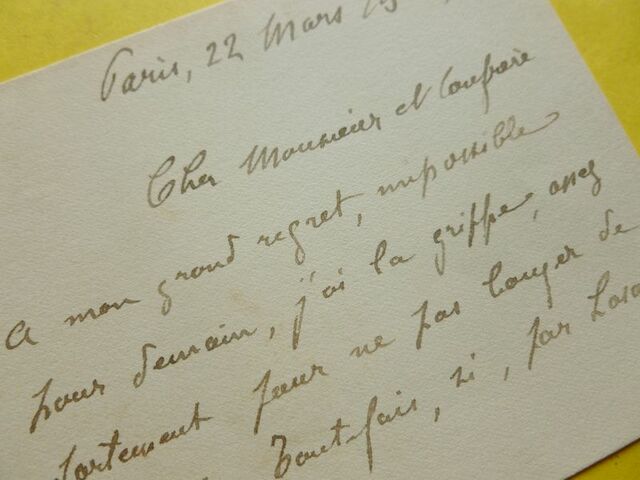 Paris, 22 Mars 19
Cher Monsieur et Confrère
A mon grand regret, impossible
pour demain, j'ai la grippe, assez
fortement pour ne pas bouger de
Toutefois, si, par hasa